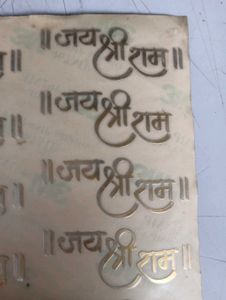 ॥जय श्री राम॥
॥जय श्री राम
॥जय श्री राम॥
॥जय श्री राम॥